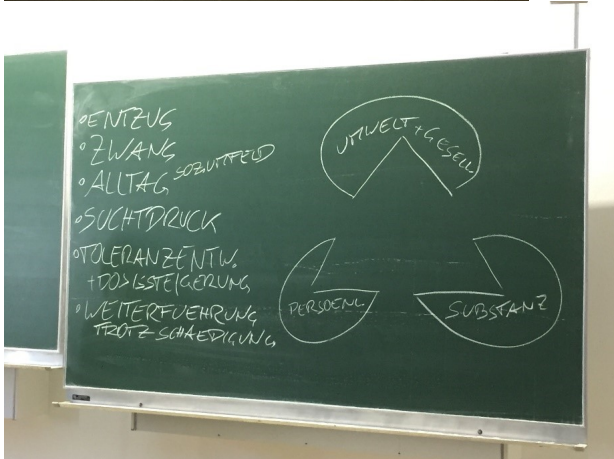 • ENTZUG
• ZWANG
• ALLTAG SOZ.UMFELD
• SUCHTDRUCK
• TOLERANZENTW.
+ DOSISSTEIGERUNG
• WEITERFUEHRUNG
TROTZ SCHAEDIGUNG
UMWELT + GESELL
PERSOENL
SUBSTANZ